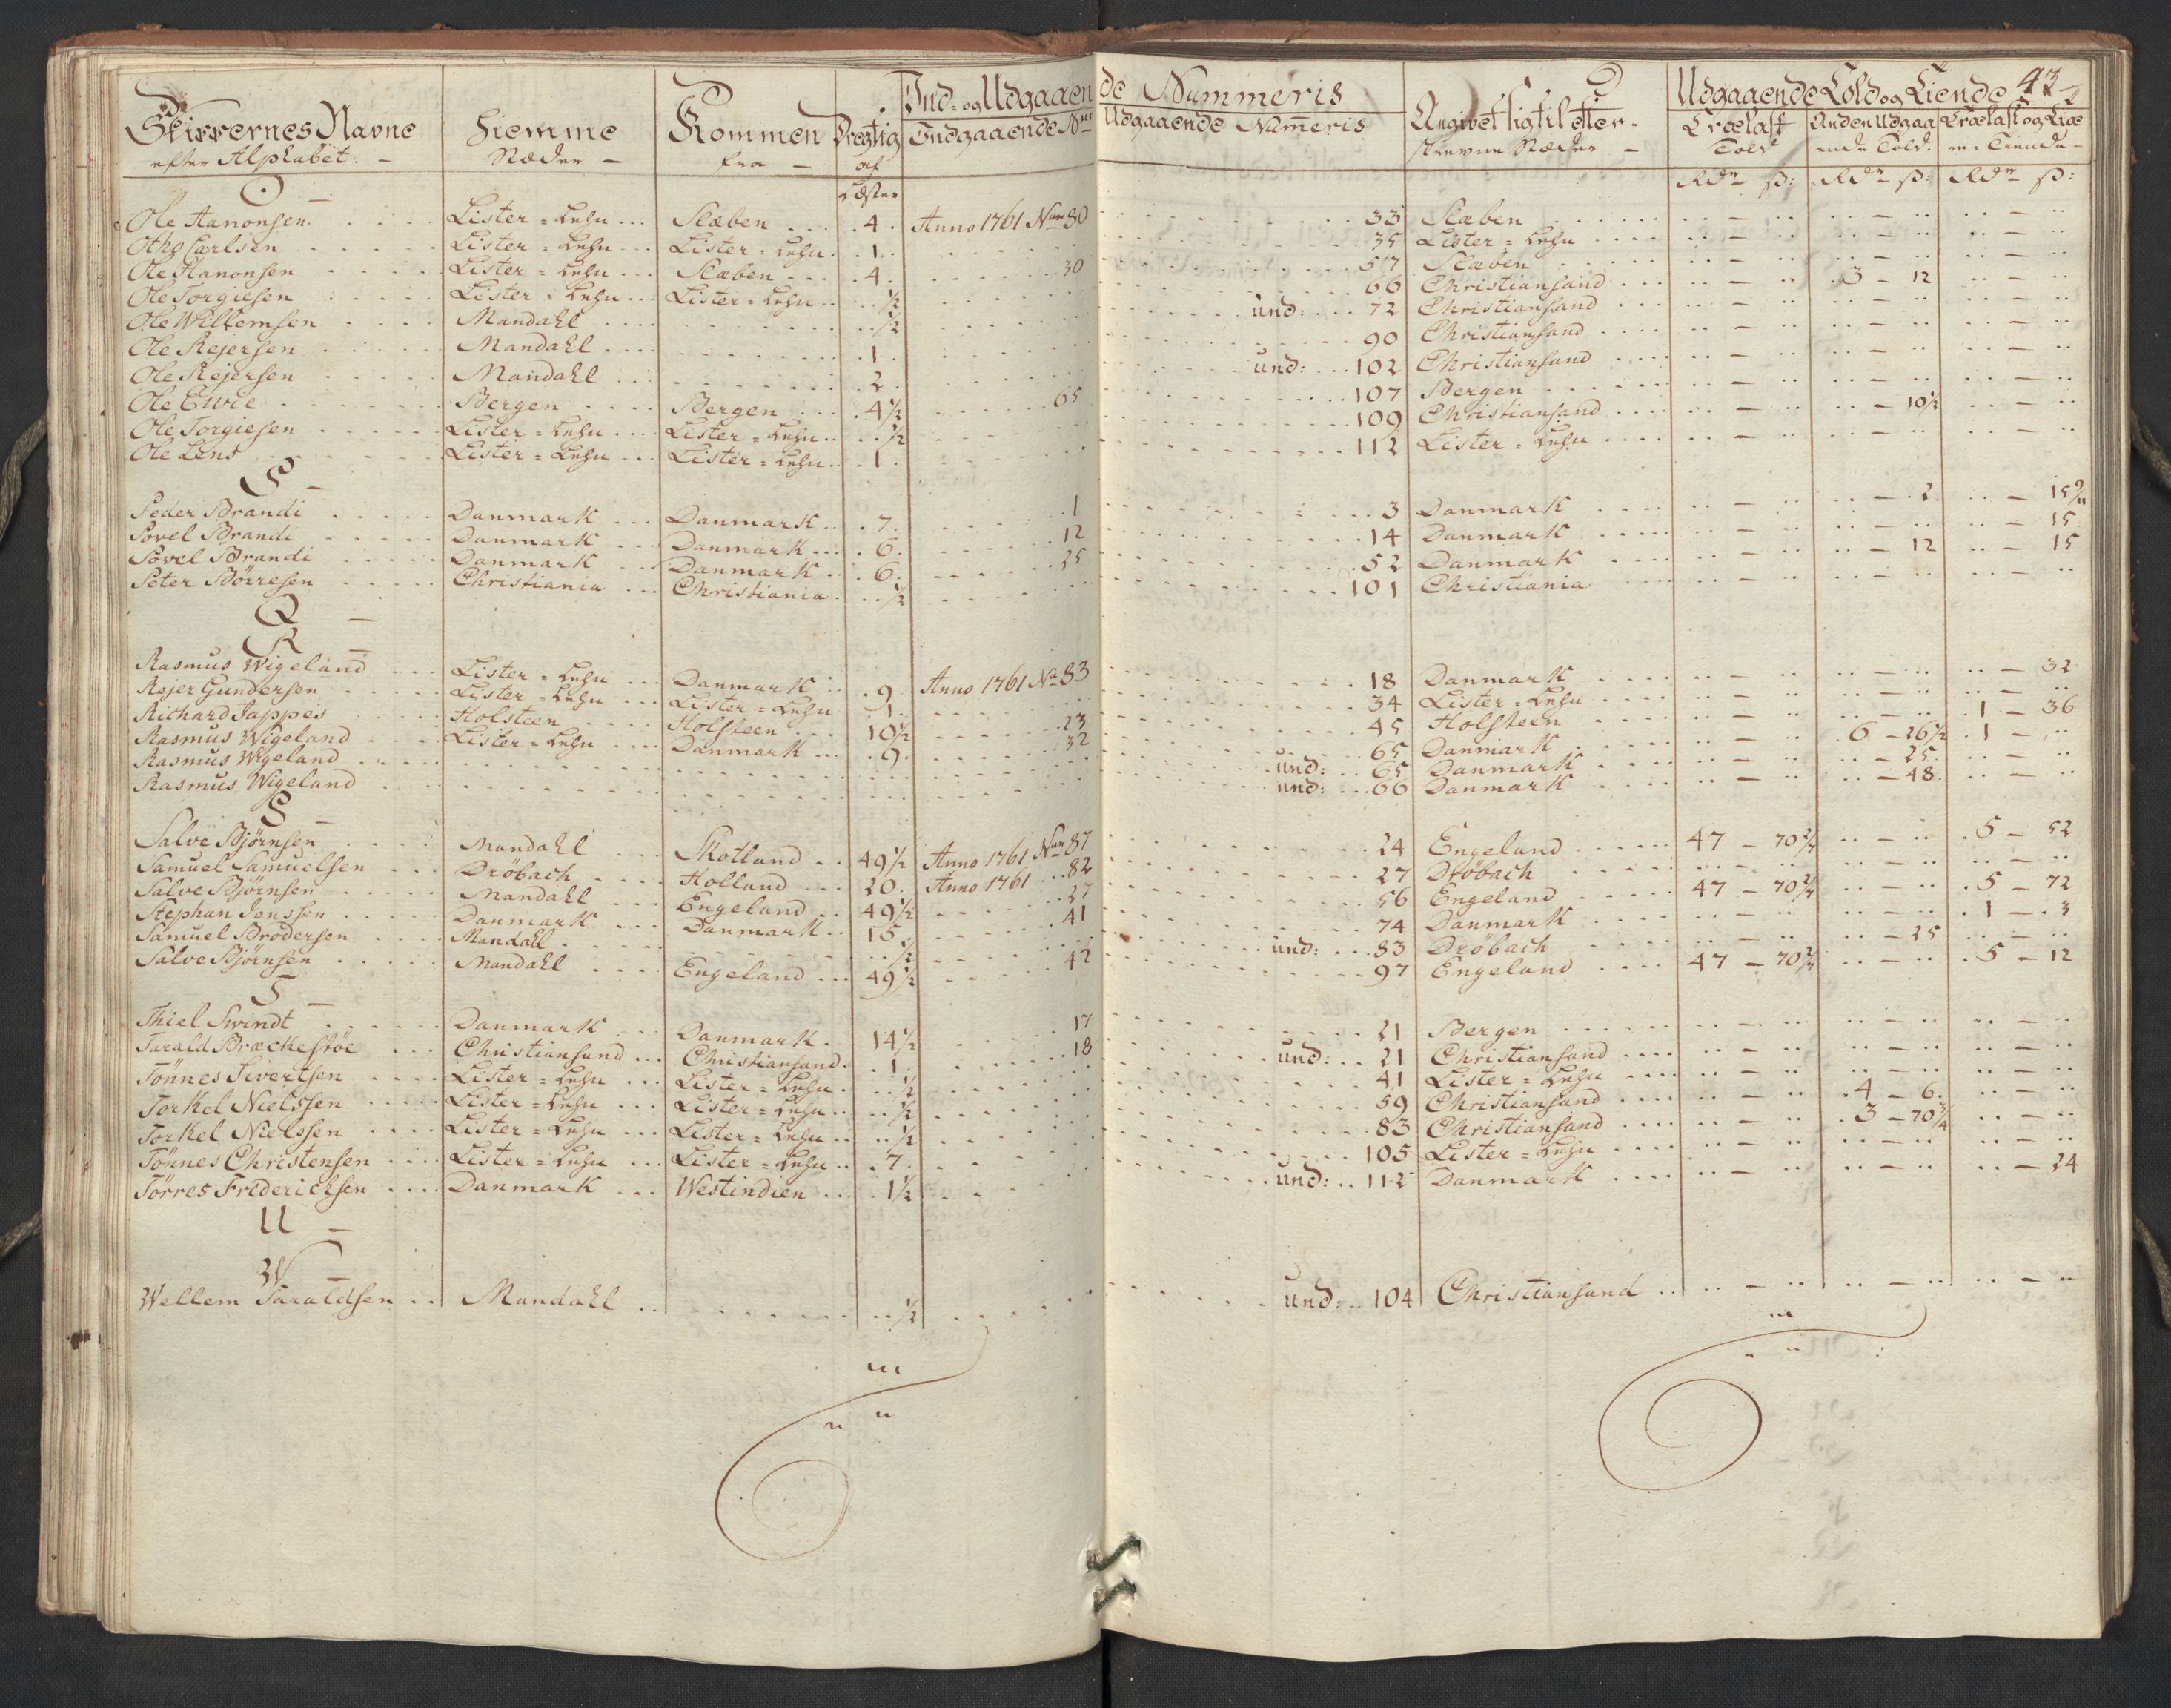 Skippernes Navne Hiemme Kommen Drægtig Ind- og Udgaaende Nummeris Angivet sig til efter- Udgaaende Told og Tiende 43
efter Alphabet: Stæder fra af Læster Indgaaende Nur Udgaaende Numeris skrevne Stæder Trælast Told Anden Udgaaende Told Trælast og Tiære Tiende
Rdr ß: Rdr ß: Rdr ß:
O
Ole Hanonsen Lister=Lehn Slæben 4 Anno 1761 Nur 80 33 Slæben
Otho Carlsen Lister=Lehn Lister=Lehn 1 35 Lister=Lehn
Ole Hanonsen Lister=Lehn Slæben 4 30 57 Slæben
Ole Torgiesen Lister=Lehn Lister=Lehn ½ 66 Christiansand 3 - 12
Ole Willemsen Mandahl ½ und: 72 Christiansand
Ole Rejersen Mandahl 1 90 Christiansand
Ole Rejersen Mandahl 2 und: 102 Christiansand
Ole Ewre Bergen Bergen 4½ 65 107 Bergen
Ole Torgiesen Lister=Lehn Lister=Lehn ½ 109 Christiansand - 10½
Ole Lend Lister=Lehn Lister=Lehn 1 112 Lister=Lehn
P
Peder Brandi Danmark Danmark 7 1 3 Danmark - 2 - 15
Povel Brandi Danmark Danmark 6 12 14 Danmark - 15
Povel Brandi Danmark Danmark 6 25 52 Danmark - 12 - 15
Peter Börresen Christiania Christiania ½ 101 Christiania
Q
R
Rasmus Wigeland Lister=Lehn Danmark 9 Anno 1761 No 83 18 Danmark - 32
Rejer Gundersen Lister=Lehn Lister=Lehn 1 34 Lister=Lehn
Richard Jappes Holsteen Holsteen 10½ 23 45 Holsteen 1 - 36
Rasmus Wigeland Lister=Lehn Danmark 9 32 65 Danmark 6 - 26½ 1 -
Rasmus Wigeland und: 65 Danmark - 25
Rasmus Wigeland und: 66 Danmark - 48
S
Salve Bjørnsen Mandahl Skotland 49½ Anno 1761 Nur 87 24 Engeland 47 - 70 2/7 5 - 52
Samuel Samuelsen Dröbach Holland 20 Anno 1761 82 27 Dröbach
Salve Bjørnsen Mandahl Engeland 49½ 27 56 Engeland 47 - 70 2/7 5 - 72
Stephan Jenssen Danmark Danmark 15 41 74 Danmark 1 - 3
Samuel Brodersen Mandahl ½ und: 83 Dröbach - 25
Salve Bjørnsen Mandahl Engeland 49½ 42 97 Engeland 47 - 70 2/7 5 - 12
T
Thiel Swindt Danmark Danmark 14½ 17 21 Bergen
Tarald Bræckestöe Christiansand Christiansand 1 18 und: 21 Christiansand
Tönnes Sivertsen Lister=Lehn Lister=Lehn ½ 41 Lister=Lehn
Torkel Nielssen Lister=Lehn Lister=Lehn ½ 59 Christiansand 4 - 6
Torkel Nielssen Lister=Lehn Lister=Lehn ½ 83 Christiansand 3 - 70¾
Tönnes Christensen Lister=Lehn Lister=Lehn 7 105 Lister=Lehn
Törres Friderichsen Danmark Westindien 1½ und: 112 Danmark - 24
U
W
Wellem Taraldsen Mandahl ½ und: 104 Christiansand